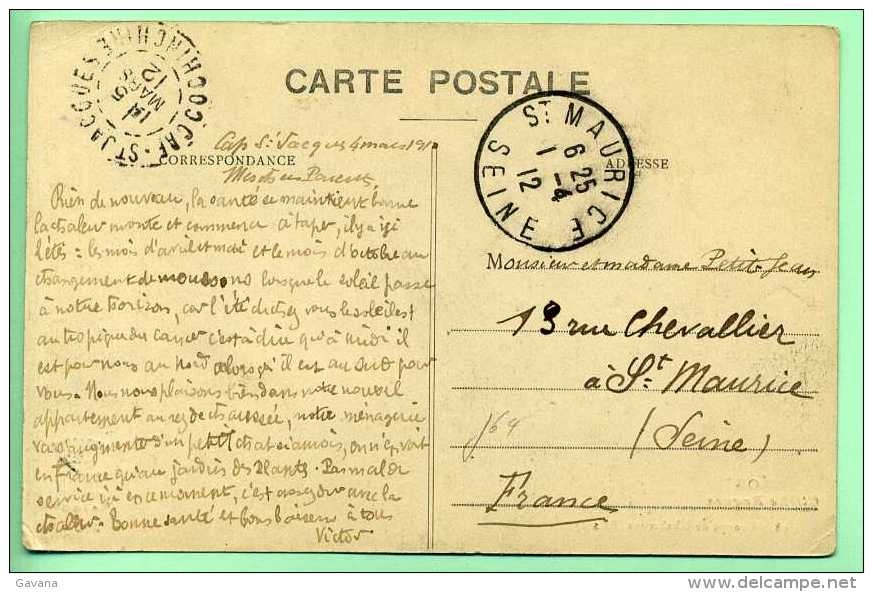 CARTE POSTALE
CAP-ST JACQUES COCHINCHINE
MARS
12
ST MAURICE
6 25
1 -4
12
SEINE
Cap St Jacques 4 mars 191
CORRESPONDANCE
ADRESSE
Mes chers Parents
Rien de nouveau, la santé se maintient bonne
la chaleur monte et commence à taper, il y a ici
2 étés : les mois d'avril et mai et le mois d'octobre au
changement de moussons lorsque le soleil passe
à notre horizon, car l'été de chez vous le soleil est
au tropique du cancer c'est à dire qu'à midi il
est pour nous au Nord alors qu'il est au Sud pour
vous. Nous nous plaisons bien dans notre nouvel
appartement au rez de chaussée, notre ménagerie
va s'augmenter d'un petit chat siamois, on n'en voit
en France qu'au jardin des Plants. Pas mal de
service ici en ce moment, c'est assez dur avec la
chaleur. Bonne santé et bons baisers à tous
Victor
Monsieur et madame Petit-Jean
13 rue Chevallier
à St. Maurice
(Seine)
France
Gavana
delcampe.net